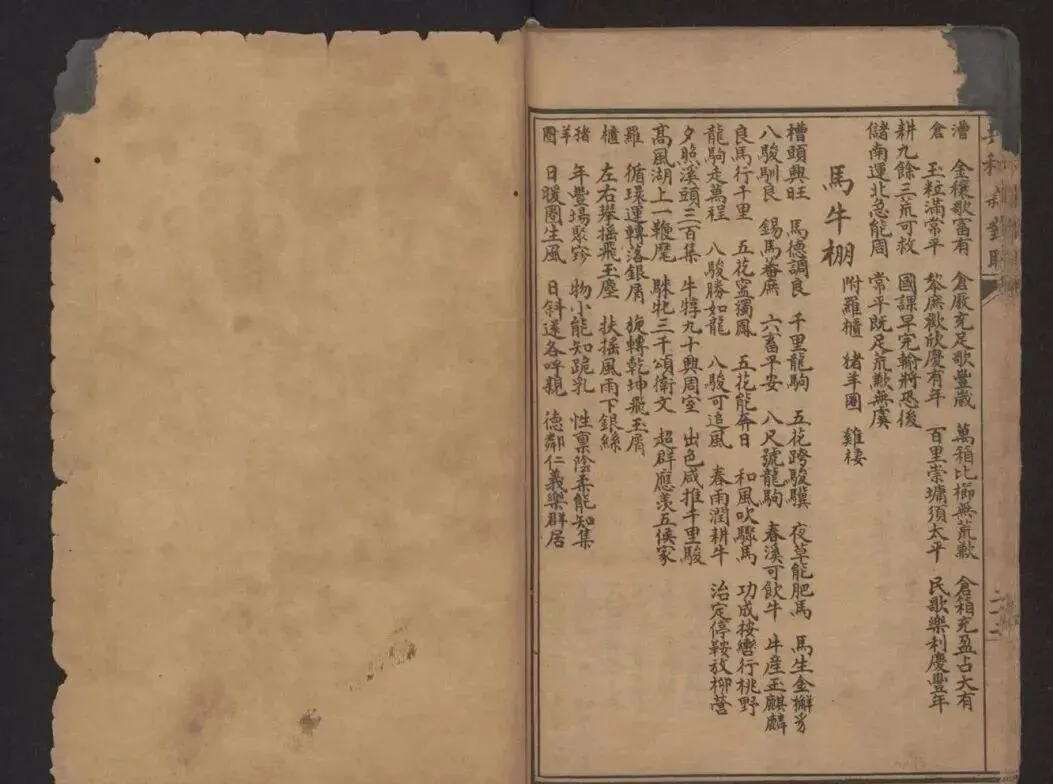 漕 金穰歌富有 倉廒充足歌豐歲 萬箱比櫛無荒歉 倉箱充盈占大有
倉 玉粒滿常平 黎庶歡欣慶有年 百里崇墉須太平 民歌樂利慶豐年
耕九餘三荒可救 國課早完輸將恐後
儲南運北急能周 常平既足荒歉無虞
馬牛棚 附羅櫃 猪羊圈 雞棲
槽頭興旺 馬德調良 千里龍駒 五花跨駿驥 夜草能肥馬 馬生金獬豸
八駿馴良 錫馬蕃庶 六畜平安 八尺號龍駒 春溪可飲牛 牛産玉麒麟
良馬行千里 五花宜獨鳳 五花能奔日 和風吹驟馬 功成按轡行桃野
龍駒走萬程 八駿勝如龍 八駿可追風 春雨潤耕牛 治定停鞍放柳營
夕照溪頭三百集 牛犉九十興周室 出色咸推千里駿
高風湖上一鞭麾 騋牝三千頌衛文 超群應羡五侯家
羅 循環運轉落銀屑 旋轉乾坤飛玉屑
櫃 左右舉摇飛玉塵 扶摇風雨下銀絲
猪 年豐場聚 物小能知跪乳 性禀陰柔能知集
羊
圈 日暖圈生風 日斜還各呼親 德鄰仁義樂群居